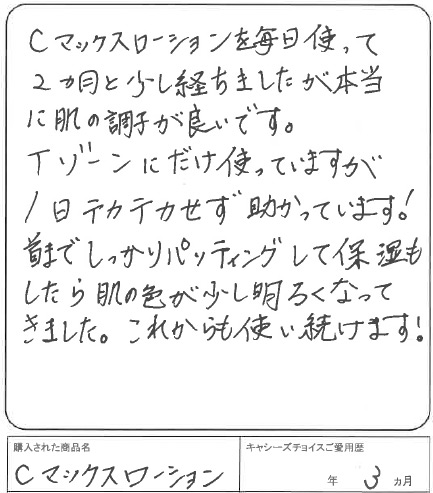 Cマックスローションを毎日使って
2カ月と少し経ちましたが本当
に肌の調子が良いです。
Tゾーンにだけ使っていますが
1日テカテカせず助かっています!
首までしっかりパッティングして保湿も
したら肌の色が少し明るくなって
きました。これからも使い続けます!
購入された商品名
キャシーズチョイスご愛用歴
Cマックスローション
年 3 ヵ月